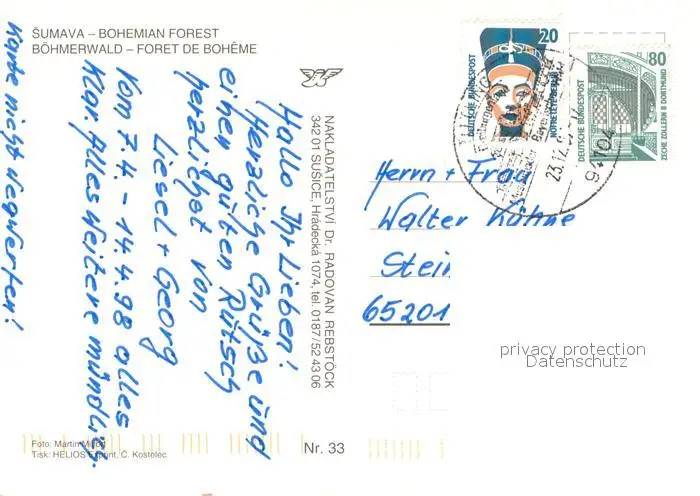 ŠUMAVA – BOHEMIAN FOREST
BÖHMERWALD – FORET DE BOHÊME
Hallo Ihr Lieben!
Herzliche Grüße und
einen guten Rutsch
herzlichst von
Liesel + Georg
Vom 7.4 – 14.4.98 alles
Klar. Alles Weitere mündlich.
Karte nicht wegwerfen!
NAKLADATELSTVÍ Dr. RADOVAN REBSTÖCK
342 01 SUŠICE, Hrádecká 1074, tel. 0187/52 43 06
20
DEUTSCHE BUNDESPOST
80
DEUTSCHE BUNDESPOST
ZECHE ZOLLERN II DORTMUND
23.12.
94104
Herrn + Frau
Walter Kühne
Stein
65201
privacy protection
Datenschutz
Foto: Martin
Tisk: HELIOS Exprint, Č. Kostelec
Nr. 33